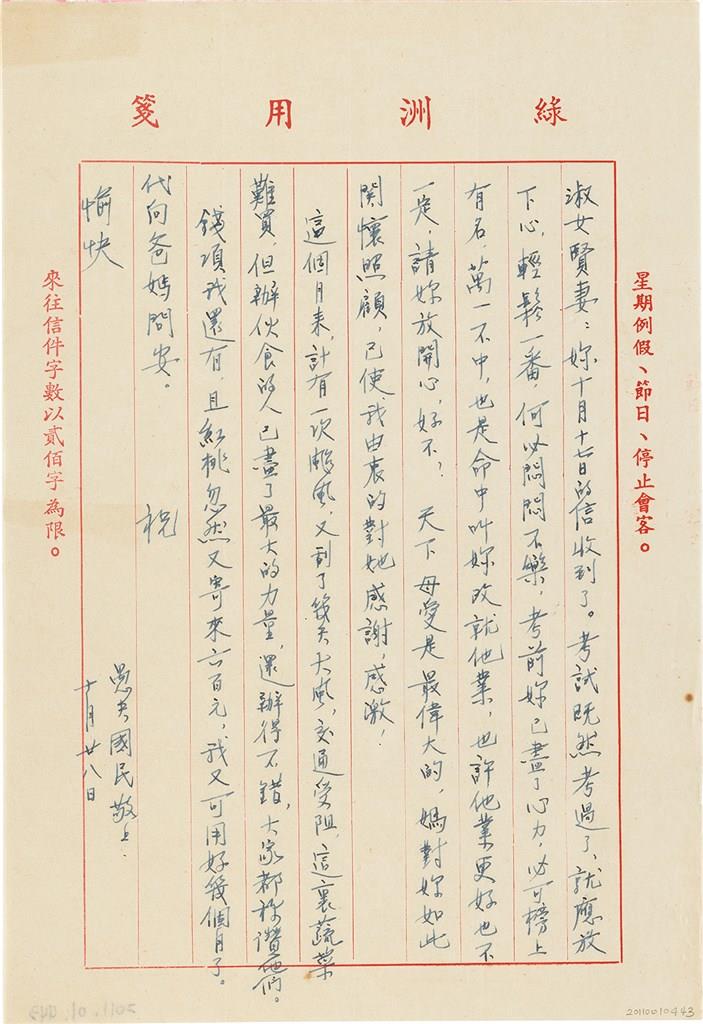 綠洲用箋
星期例假、節日、停止會客。
淑女賢妻：妳十月十七日的信收到了。考試既然考過了、就應放
下心，輕鬆一番，何必悶悶不樂，考前妳已盡了心力，必可榜上
有名，萬一不中，也是命中叫妳改就他業，也許他業更好也不
一定，請妳放開心，好不？ 天下母愛是最偉大的，媽對妳如此
関懷照顧，已使我由衷的對她感謝，感激！
這個月來，計有一次颱風，又刮了幾天大風，交通受阻，這裏蔬菜
難買，但辦伙食的人已盡了最大的力量，還辦得不錯，大家都称讚他們。
錢項我還有，且紅桃忽然又寄來六百元，我又可用好幾個月了。
代向爸媽問安。 祝
愉快
愚夫國民敬上.
十月廿八日
來往信件字數以貳佰字為限。
2011.01.0443
20110010443